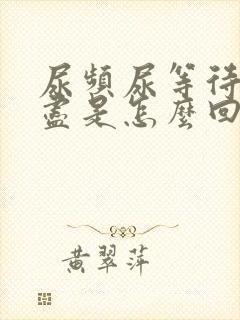 尿頻尿等待
盡是怎麼回
黄翠萍